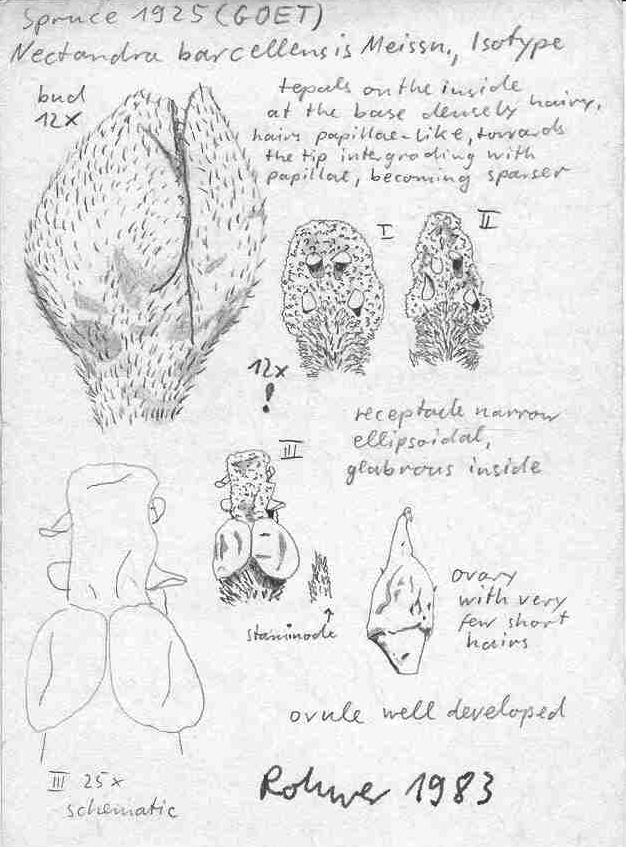 Spruce 1925 (GOET)
Nectandra barcellensis Meissn., Isotype
bud
12x
tepals on the inside
at the base densely hairy,
hairs papillae-like, towards
the tip intergrading with
papillae, becoming sparser
I
II
12x
!
receptacle narrow
ellipsoidal,
glabrous inside
III
staminode
ovary
with very
few short
hairs
ovule well developed
III 25x
schematic
Rohwer 1983